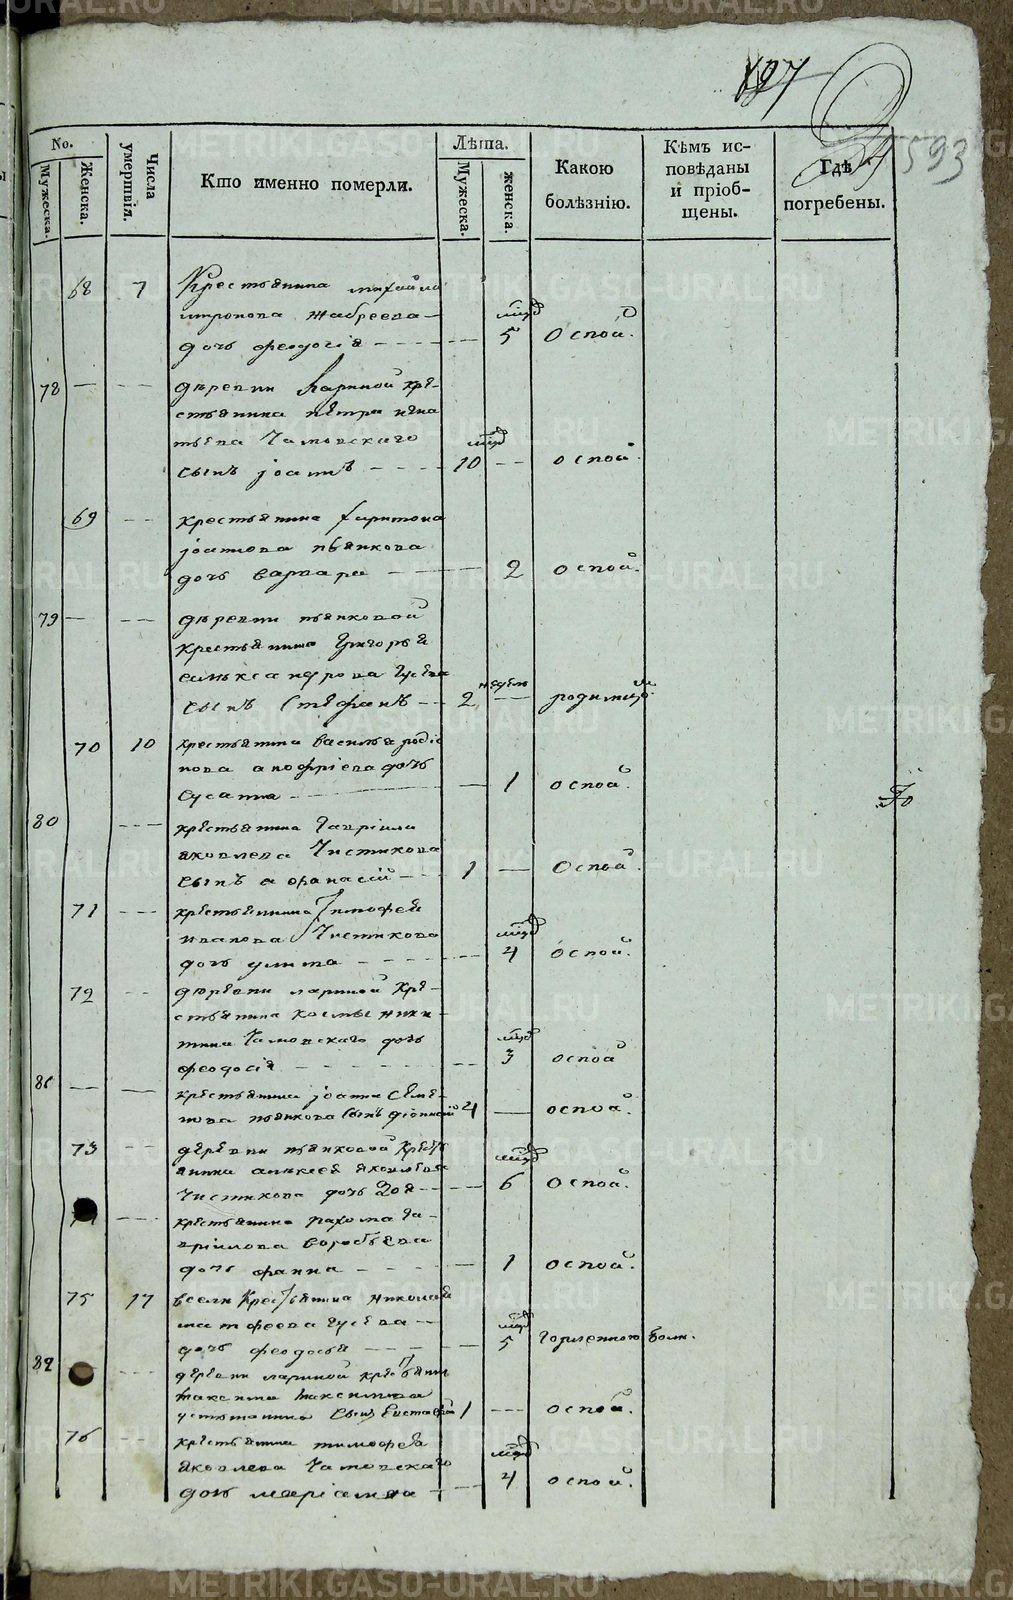 197
593
No.
Мужеска.
Женска.
Числа умертвія.
Кто именно померли.
Лѣта.
Мужеска.
женска.
Какою болѣзнію.
Кѣмъ исповѣданы и пріобщены.
Гдѣ погребены.
68 7 Крестьянина михайла
митронова жабреева
дочь феодосія 5 Оспой.
78 деревни Лариной кре-
стьянина петра игна
тьева Чамовскаго
сынъ іоаннъ 10 оспой
69 крестьянина харитона
іоаннова пьянкова
дочь варвара 2 оспой.
79 деревни пьянковой
крестьянина Григорья
александрова Гусева
недель
сынъ Стефанъ 2 родимцѣ
70 10 крестьянина василья родіо
нова анофріева дочь
Сусанна 1 оспой.
80 крестьянина Гавріила
яковлева Чистякова
сынъ афанасій 1 Оспой
71 крестьянина Тимофея
иванова Чистякова
дочь улита 4 оспой.
72 деревни лариной кре-
стьянина космы ники-
тина Чамовскаго дочь
феодосія 3 оспой
81 крестьянина іоанна Семе-
нова пьянкова сынъ діонисій 4 оспой.
73 деревни пьянковой крестья
нина алексея яковлева
Чистякова дочь Зоя 6 Оспой.
крестьянина пахома га-
вріилова воробьева
дочь фаина 1 оспой.
75 17 всели крестьянина николая
матфеева Гусева
дочь феодосья 5 Горленною болн.
82 деревни лариной крестьянин
максима максимова
устьянина сынъ Евстафій 1 оспой.
76 крестьянина тимофея
яковлева Чамовскаго
дочь маріамна 4 оспой.
METRIKI.GASO-URAL.RU